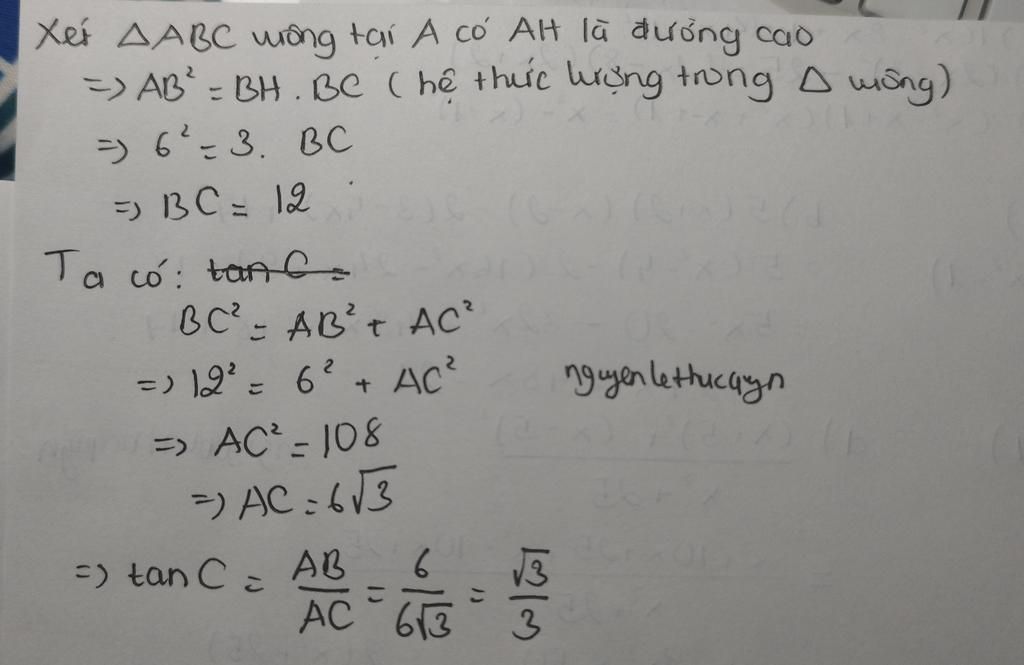 Xét △ABC vuông tại A có AH là đường cao
=> AB² = BH . BC (hệ thức lượng trong △ vuông)
=> 6² = 3. BC
=> BC = 12
Ta có: tan C =
BC² = AB² + AC²
=> 12² = 6² + AC²
nguyenlethucqyn
=> AC² = 108
=> AC = 6√3
=> tan C = AB/AC = 6/6√3 = √3/3